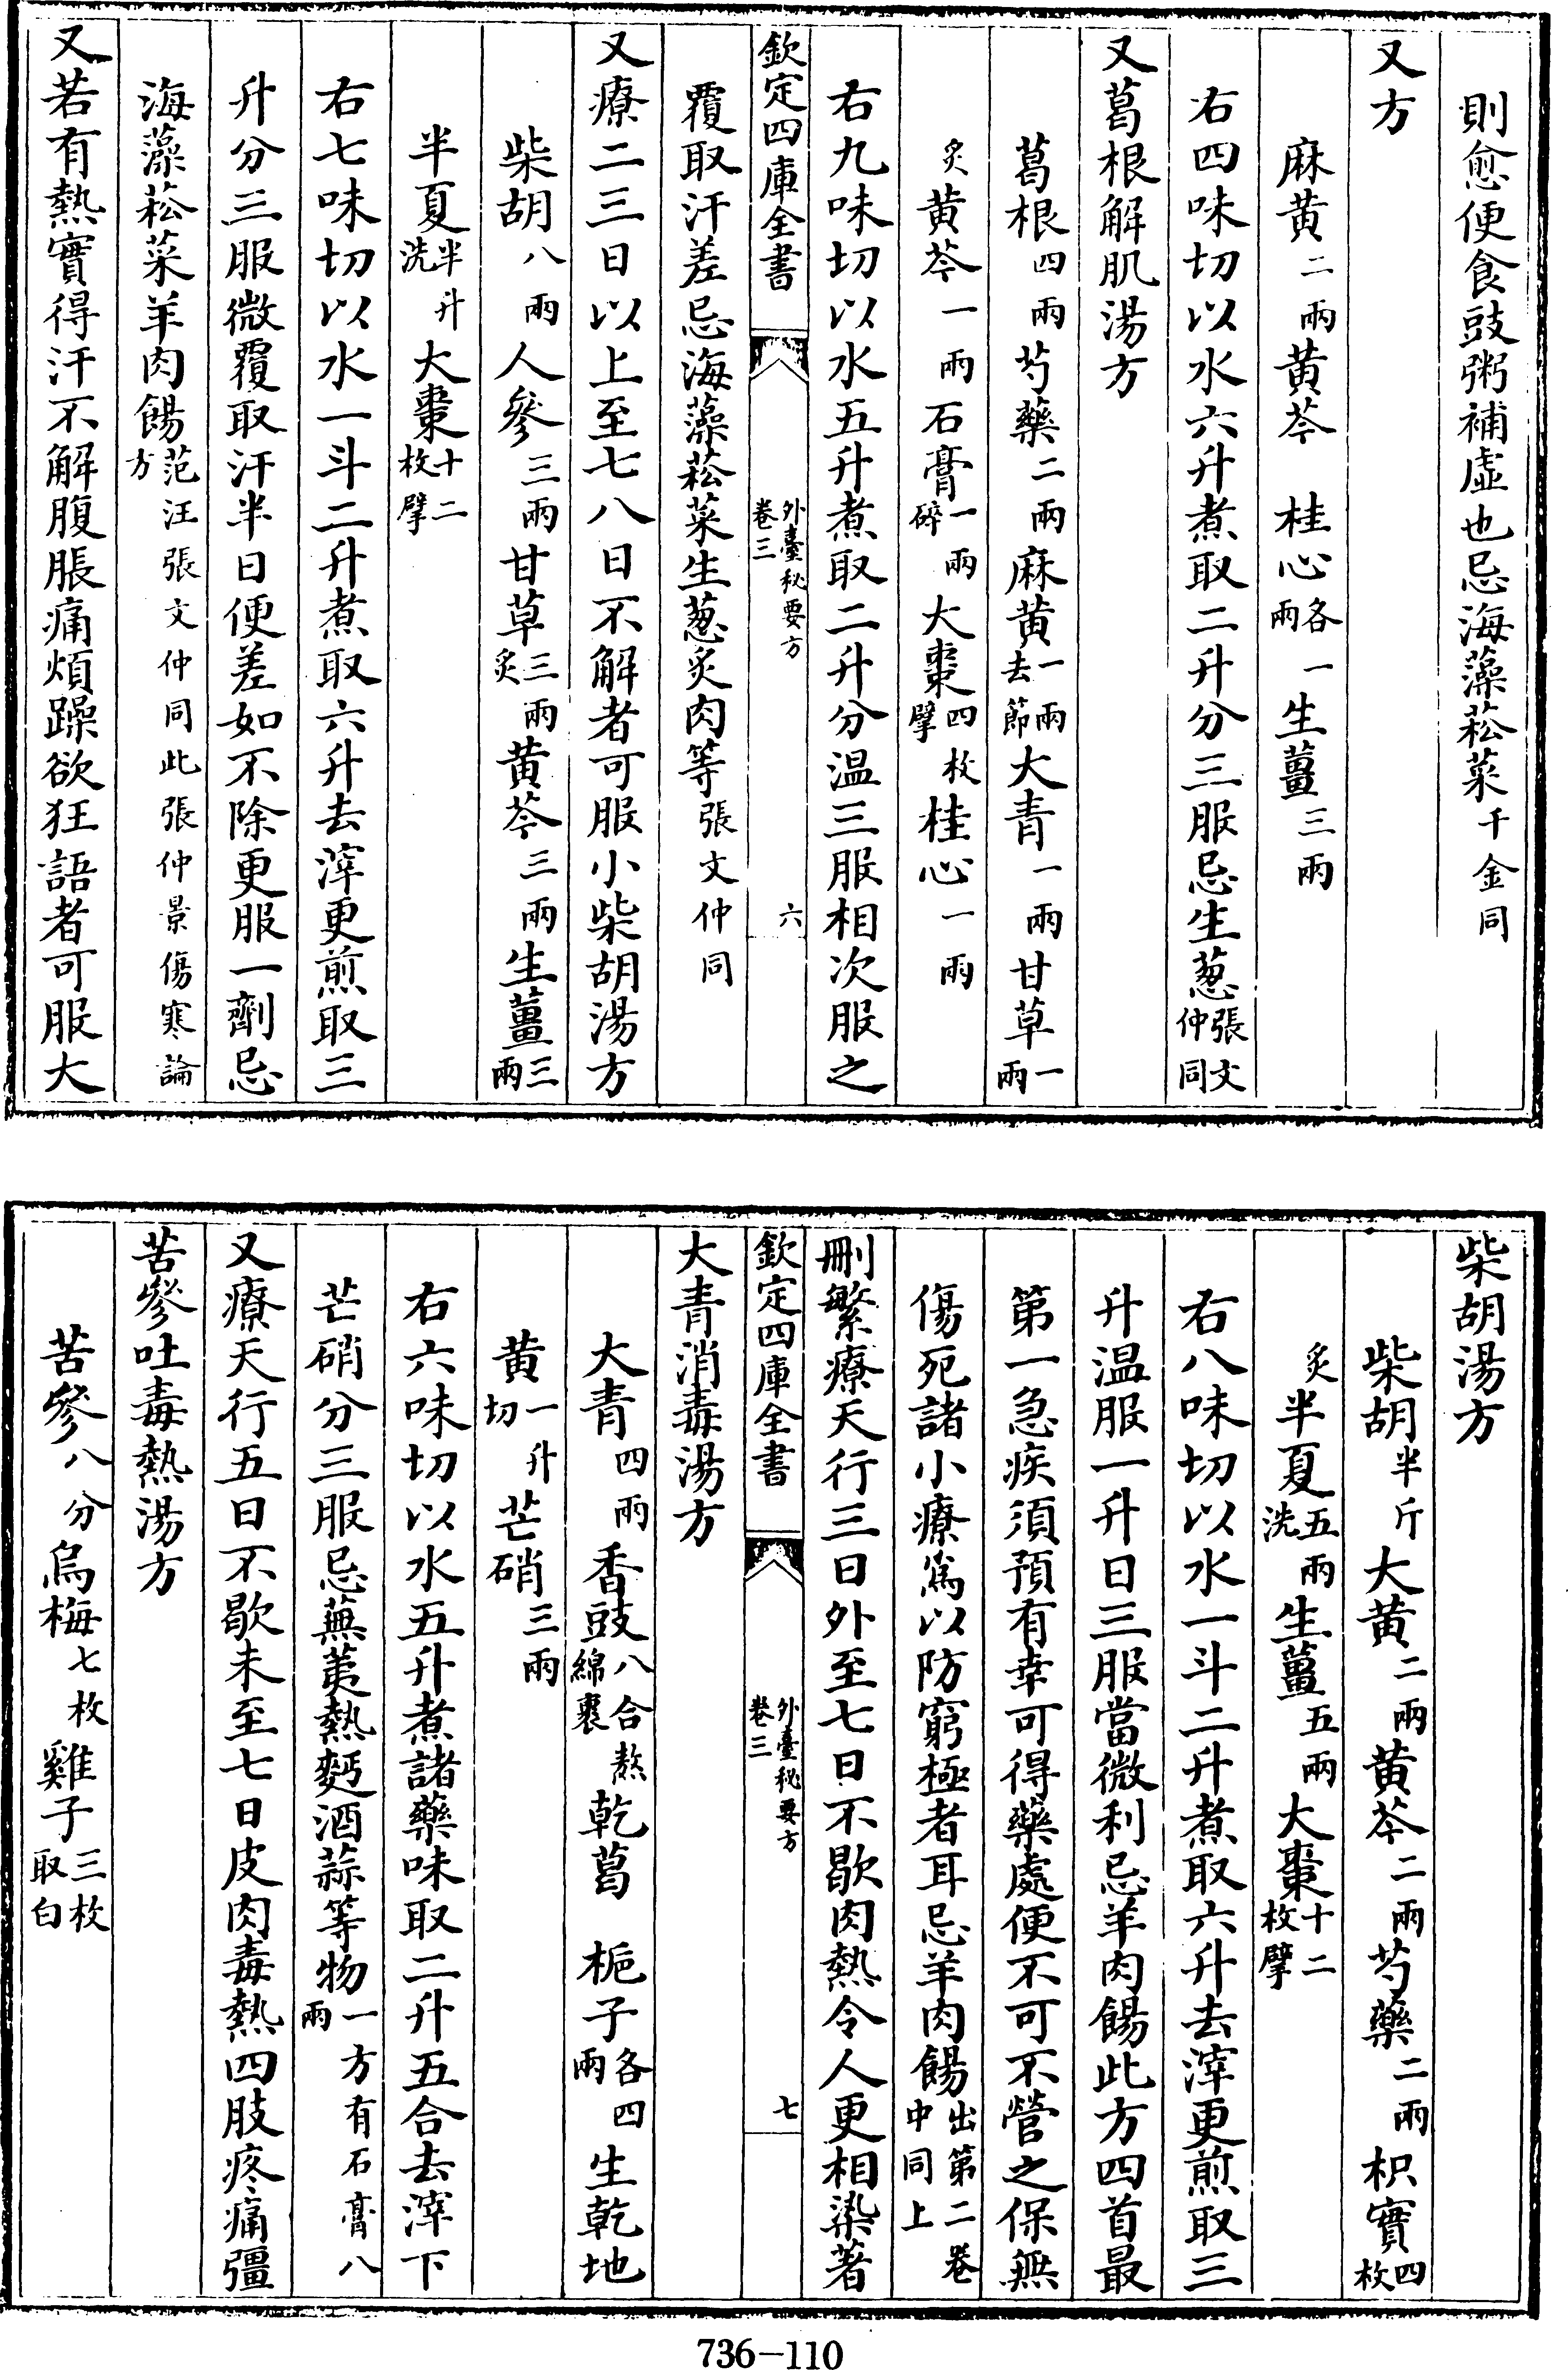 則愈便食豉粥補虛也忌海藻菘菜千金同
又方
麻黄二兩黄芩 桂心各一兩生薑三兩
右四味切以水六升煮取二升分三服忌生葱張文仲同
又葛根解肌湯方
葛根四兩芍藥二兩麻黄一兩去節大青一兩甘草一兩
炙黄芩一兩石膏一兩碎大棗四枚擘桂心一兩
右九味切以水五升煮取二升分温三服相次服之
欽定四庫全書 外臺秘要方卷三 六
覆取汗差忌海藻菘菜生葱炙肉等張文仲同
又療二三日以上至七八日不解者可服小柴胡湯方
柴胡八兩人參三兩甘草三兩炙黄芩三兩生薑三兩
半夏半升洗大棗十二枚擘
右七味切以水一斗二升煮取六升去滓更煎取三
升分三服微覆取汗半日便差如不除更服一劑忌
海藻菘菜羊肉餳范汪張文仲同此張仲景傷寒論方
又若有熱實得汗不解腹脹痛煩躁欲狂語者可服大
柴胡湯方
柴胡半斤大黄二兩黄芩二兩芍藥二兩枳實四枚
炙半夏五兩洗生薑五兩大棗十二枚擘
右八味切以水一斗二升煮取六升去滓更煎取三
升温服一升日三服當微利忌羊肉餳此方四首最
第一急疾須預有幸可得藥處便不可不營之保無
傷死諸小療爲以防窮極者耳忌羊肉餳出第二卷中同上
刪繁療天行三日外至七日不歇肉熱令人更相染著
欽定四庫全書 外臺秘要方卷三 七
大青消毒湯方
大青四兩香豉八合熬綿裹乾葛 梔子各四兩生乾地
黄一升切芒硝三兩
右六味切以水五升煮諸藥味取二升五合去滓下
芒硝分三服忌蕪荑熱麪酒蒜等物一方有石膏八兩
又療天行五日不歇未至七日皮肉毒熱四肢疼痛彊
苦參吐毒熱湯方
苦參八分烏梅七枚雞子三枚取白
736-110